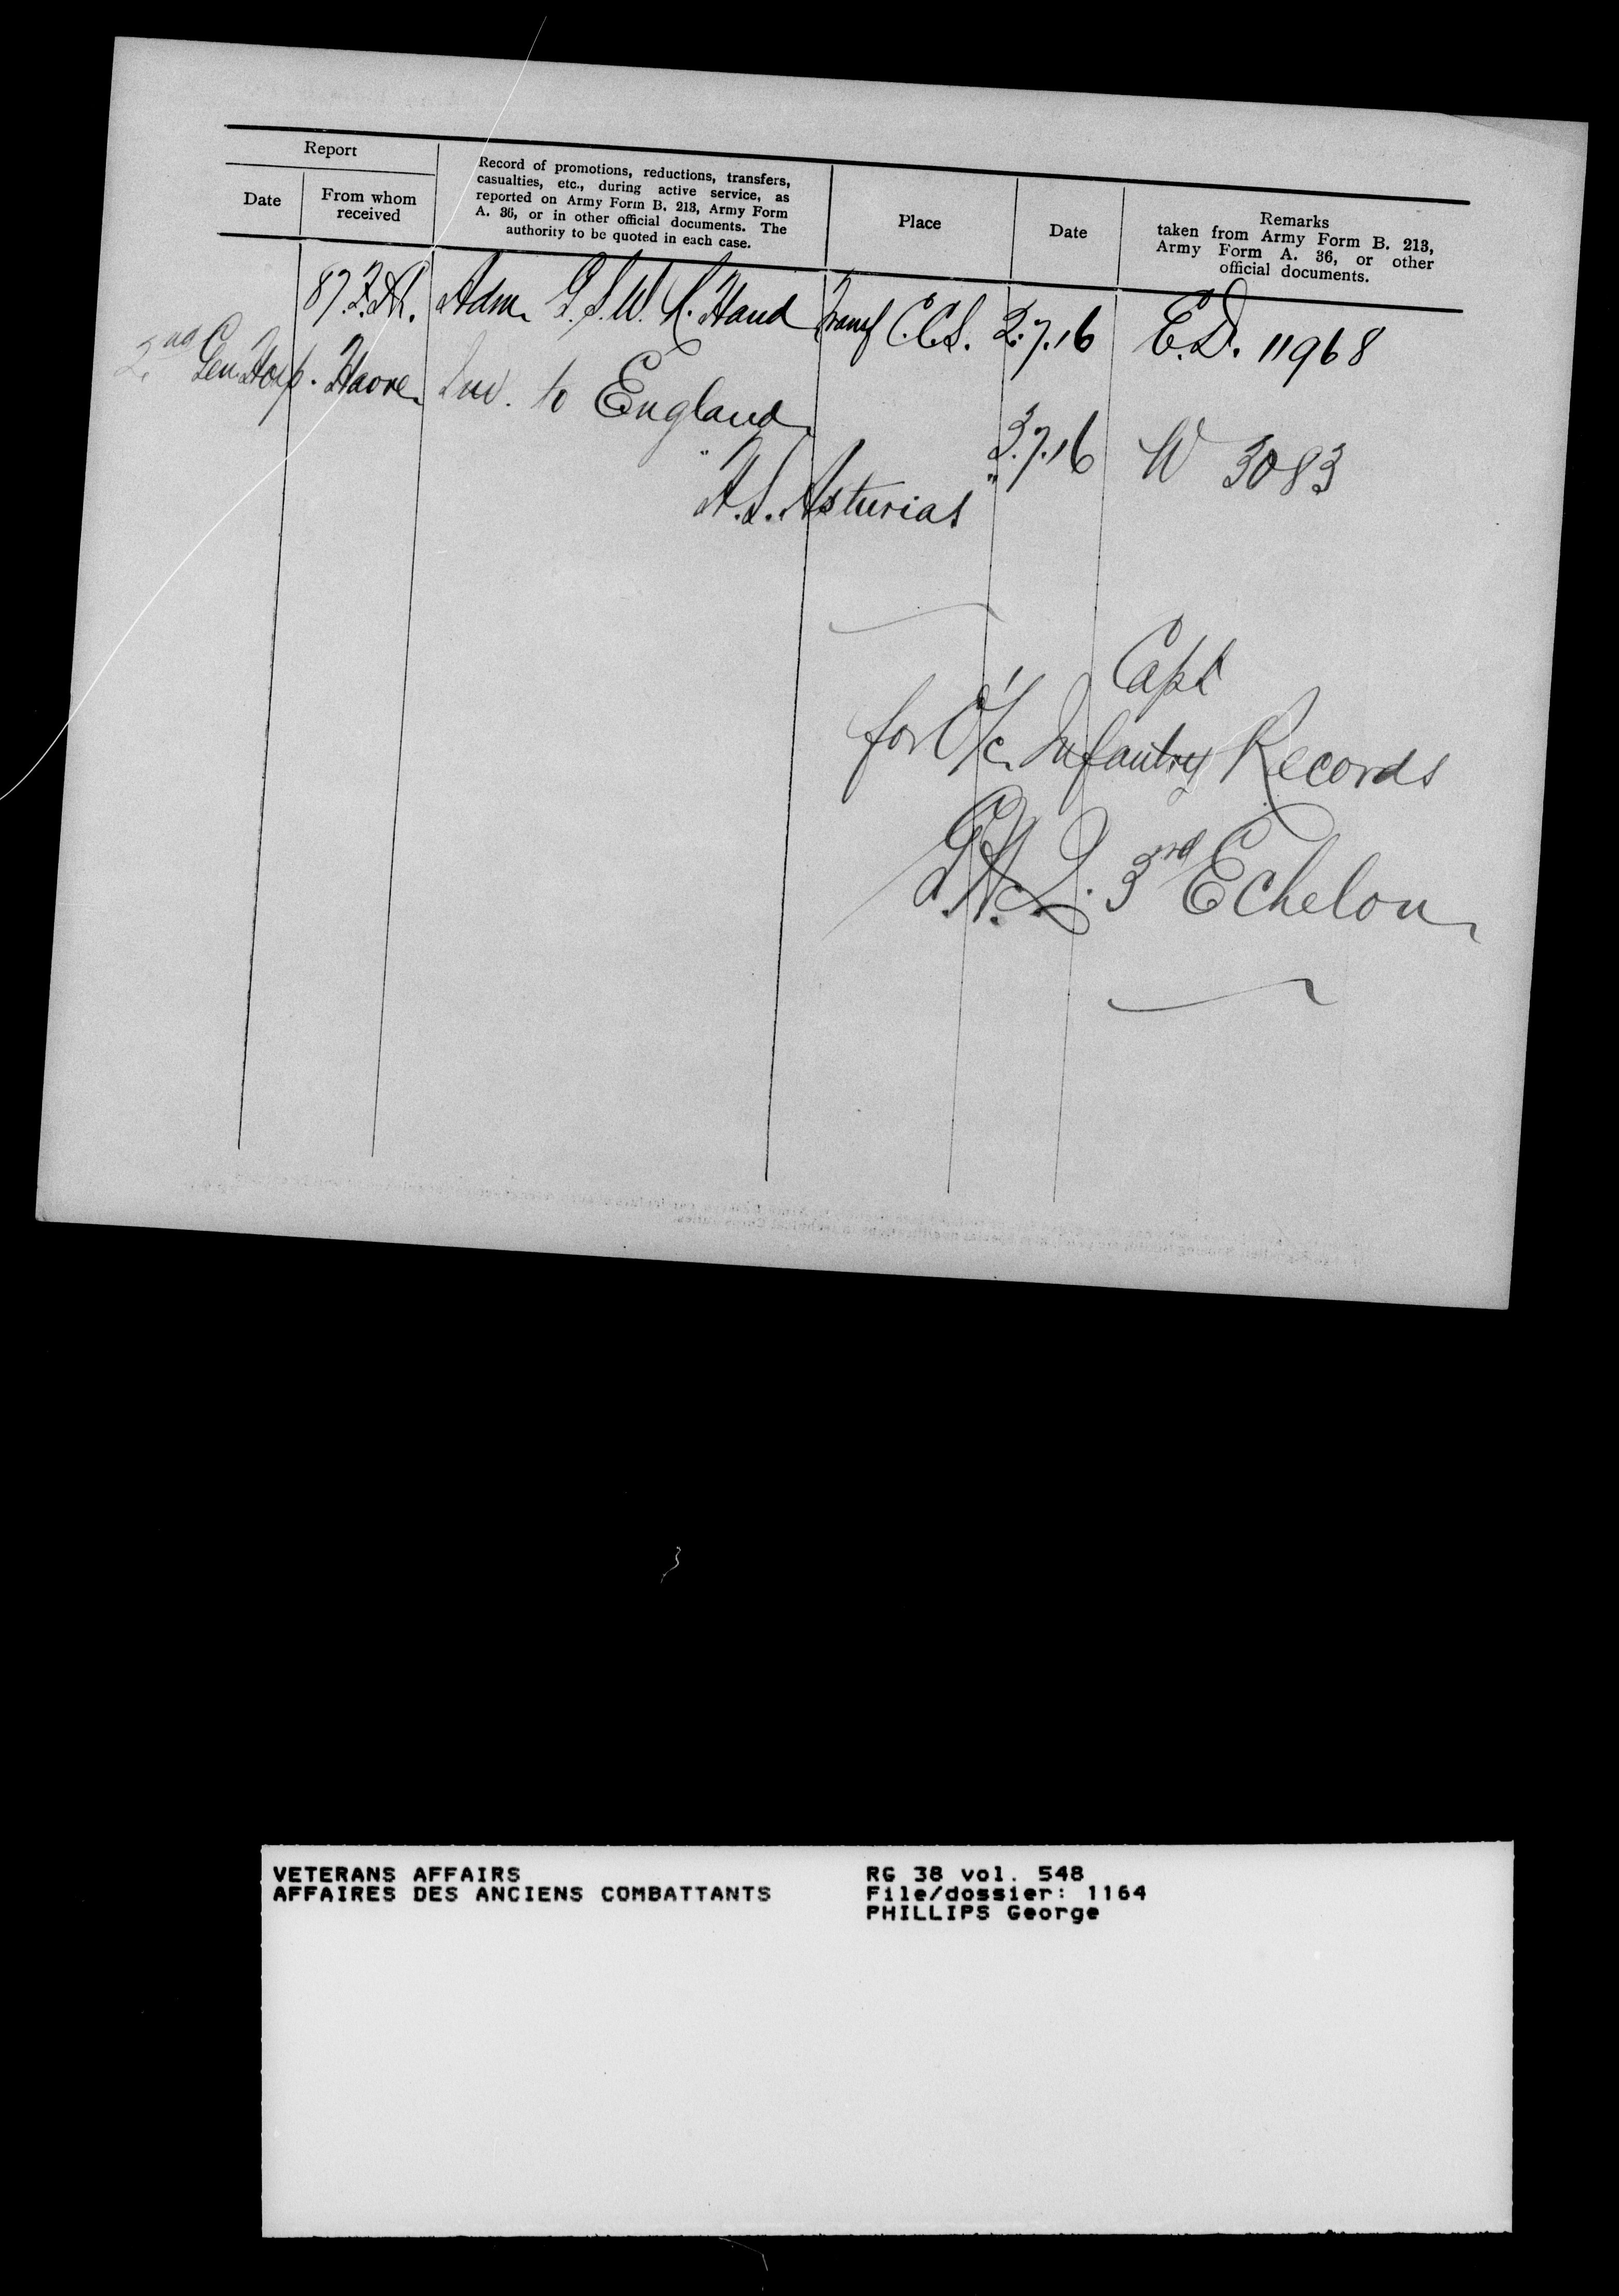 Report
Date
From whom
received
Record of promotions, reductions, transfers,
casualties, etc., during active service, as
reported on Army Form B. 213, Army Form
A. 36, or in other official documents. The
authority to be quoted in each case.
Place
Date
Remarks
taken from Army Form B. 213,
Army Form A. 36, or other
official documents.
87.F.A. Adm. G.S.W. R. Hand Transf C.C.S. 2.7.16 E.D. 11968
2nd Gen. Hosp. Havre. Inv. to England
3.7.16 W 3083
"H.S. Asturias"
Capt
for O/c. Infantry Records
G.H.Q. 3rd Echelon
VETERANS AFFAIRS
AFFAIRES DES ANCIENS COMBATTANTS
RG 38 vol. 548
File/dossier: 1164
PHILLIPS George